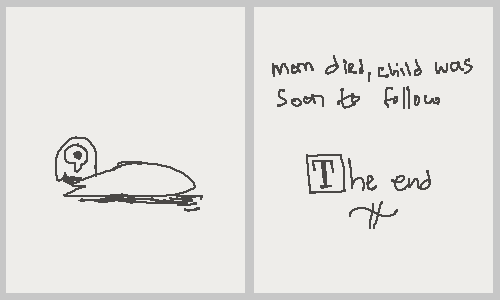 mom died, child was
soon to follow
The end